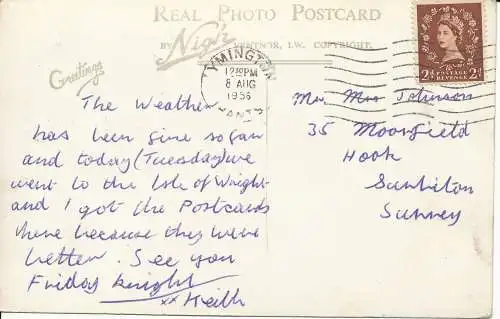 REAL PHOTO POSTCARD
BY Nigh VENTNOR, I.W. COPYRIGHT.
Greetings
LYMINGTON
12 PM
8 AUG
1956
HANTS
2D POSTAGE REVENUE 2D
The Weather
has been fine so far
and today (Tuesday) we
went to the Isle of Wright
and I got the Postcards
there because they were
better. See you
Friday knight
xx Keith
Mr Mrs Johnson
35 Moorfield
Hook
Surbiton
Surrey